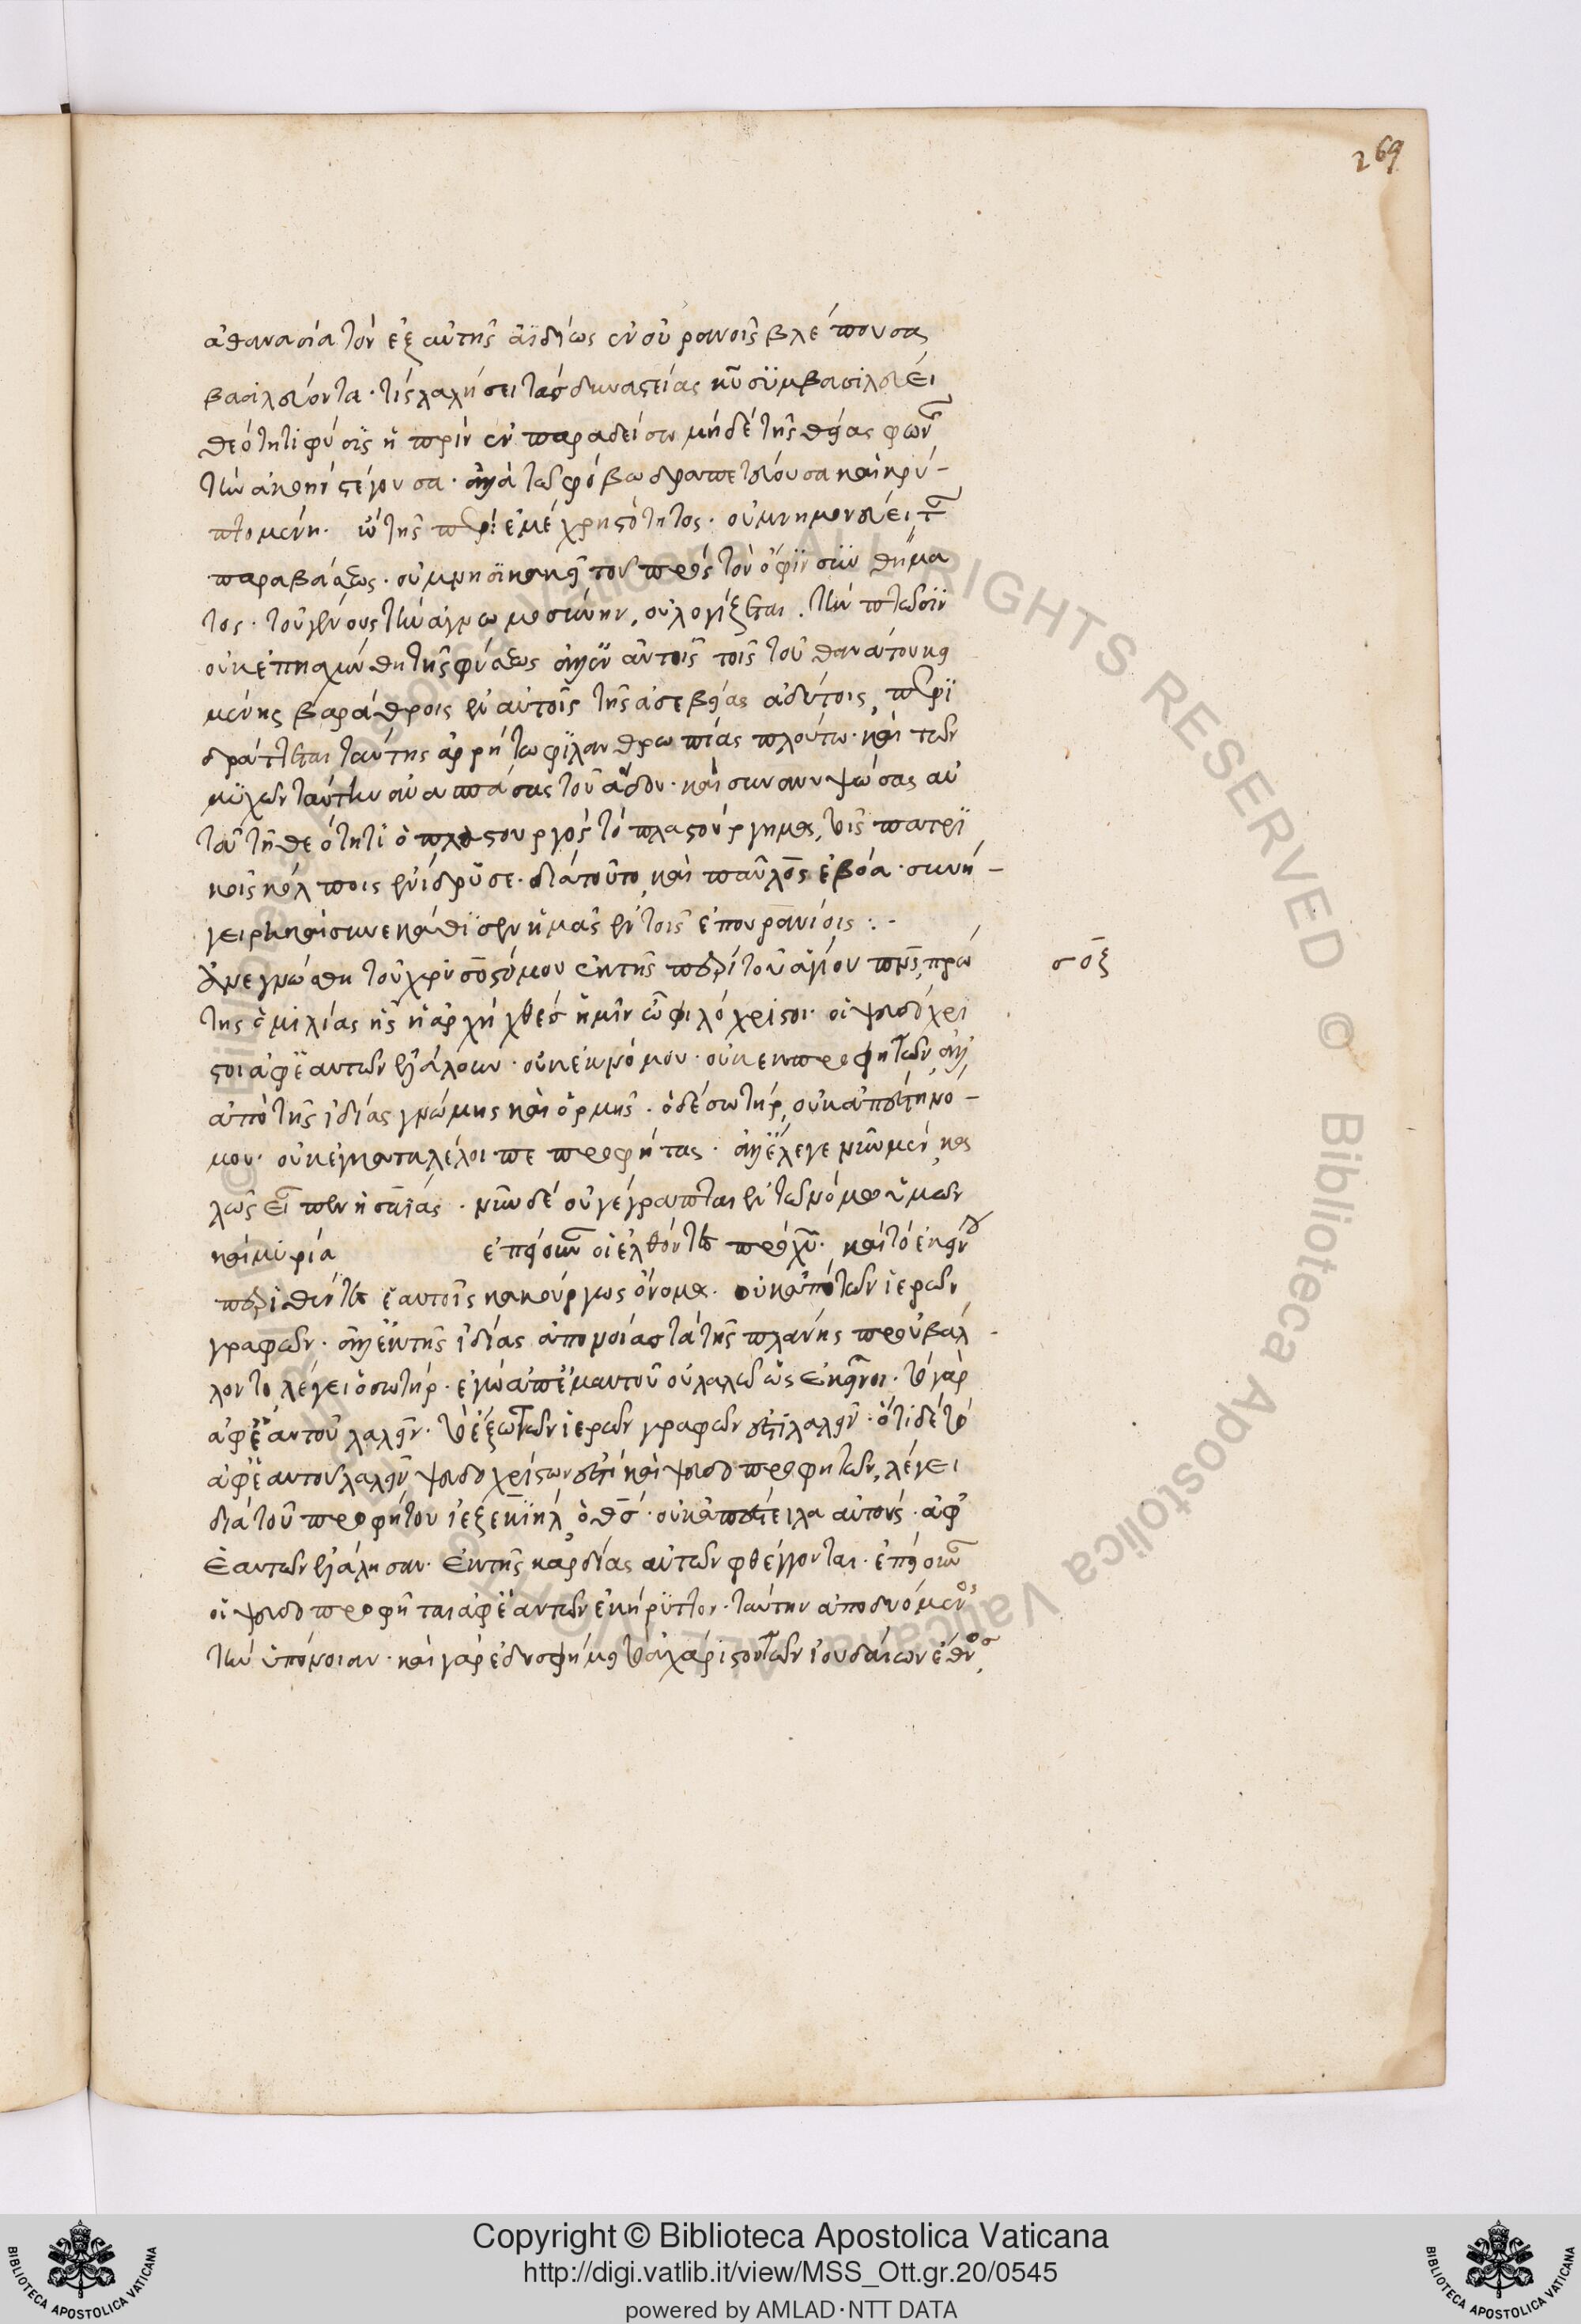 269
ἀθανασία τὸν ἐξ αὐτῆς ἀϊδίως ἐν οὐρανοῖς βλέπουσα
βασιλεύοντα· τίς λαλήσει τὰς δυναστείας κυ̅ συμβασιλεύει
θεότητι φύσις ἡ πρὶν ἐν παραδείσω μηδὲ τῆς θείας φωνῆς
τὴν ἀκοὴν στέγουσα· ἀλλὰ τῶ φόβω δραπετεύουσα καὶ κρυ-
πτομένη· ὢ τῆς περὶ ἐμὲ χρηστότητος· οὐ μνημονεύει τῆς
παραβάσεως· οὐ μνησικακεῖ τοῦ πρὸς τὸν ὄφιν συνθήμα
τος· τοῦ γένους τὴν ἀγνωμοσύνην, οὐ λογίζεται· τὴν πτῶσιν
οὐκ ἐπησχύνθη τῆς φύσεως ἀλλ' ἐν αὐτοῖς τοῖς τοῦ θανάτου κει
μένης βαράθροις ἐν αὐτοῖς τῆς ἀσεβείας ἀδύτοις, περι
δράττεται ταύτης ἀρρήτω φιλανθρωπίας πλούτω· καὶ τῶν
μυχῶν ταύτην ἀνασπάσας τοῦ ἅδου· καὶ συνανυψώσας αὐ
τοῦ τῆ θεότητι ὁ πλαστουργὸς τὸ πλαστούργημα, τοῖς πατρι
κοῖς κόλποις ἐνίδρυσε· διὰ τοῦτο, καὶ παῦλος ἐβόα· συνή-
γειρεν καὶ συνεκάθισεν ἡμᾶς ἐν τοῖς ἐπουρανίοις :-
Ἀνεγνώσθη τοῦ χρυσοστόμου ἐκ τῆς περὶ τοῦ ἁγίου πνς̅, πρώ
σοξ
της ὁμιλίας ἧς ἡ ἀρχὴ χθὲς ἡμῖν ὦ φιλόχριστοι· οἱ ψευδόχρι
στοι ἀφ' ἑαυτῶν ἐλάλουν· οὐκ ἐκ νόμου· οὐκ ἐκ προφητῶν ἀλλ'
ἀπὸ τῆς ἰδίας γνώμης καὶ ὁρμῆς· ὁ δὲ σωτὴρ, οὐκ ἀπέστη νό-
μου· οὐκ ἐγκαταλέλοιπε προφήτας· ἀλλ' ἔλεγε νῦν μὲν, κα
λῶς εἶπεν ἡσαΐας· νῦν δὲ οὐ γέγραπται ἐν τῶ νόμω ὑμῶν
καὶ μυρία ἐπεὶ οὖν οἱ ἐλθόντες πρὸ χυ̅· καὶ τὸ ἐκείνου
περιθέντες ἑαυτοῖς κακούργως ὄνομα· οὐκ ἀπὸ τῶν ἱερῶν
γραφῶν· ἀλλ' ἐκ τῆς ἰδίας ἀπονοίας τὰ τῆς πλάνης προὐβάλ-
λοντο, λέγει ὁ σωτήρ· ἐγὼ ἀπ' ἐμαυτοῦ οὐ λαλῶ ὡς ἐκεῖνοι· τὸ γὰρ
ἀφ' ἑαυτοῦ λαλεῖν· τὸ ἔξω τῶν ἱερῶν γραφῶν ἐστὶ λαλεῖν· ὅτι δὲ τὸ
ἀφ' ἑαυτοῦ λαλεῖν ψευδοχρίστων ἐστὶ καὶ ψευδοπροφητῶν, λέγει
διὰ τοῦ προφήτου ἰεζεκιὴλ ὁ θς̅· οὐκ ἀπέστειλα αὐτούς· ἀφ'
ἑαυτῶν ἐλάλησαν· ἐκ τῆς καρδίας αὐτῶν φθέγγονται· ἐπεὶ οὖν
οἱ ψευδοπροφῆται ἀφ' ἑαυτῶν ἐκήρυττον· ταύτην ἀποδυόμενος
τὴν ὑπόνοιαν· καὶ γὰρ ἐδυσφήμει τὸ ἀχάριστον τῶν ἰουδαίων ἔθνος,
Copyright © Biblioteca Apostolica Vaticana
http://digi.vatlib.it/view/MSS_Ott.gr.20/0545
powered by AMLAD·NTT DATA